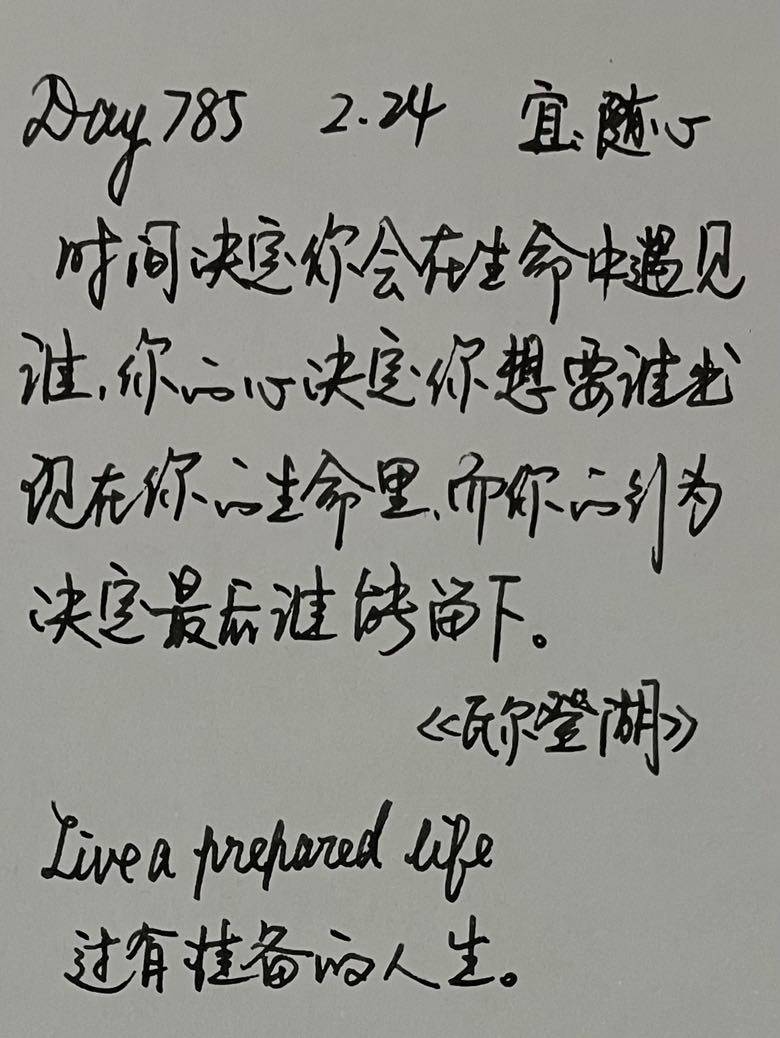 Day 785 2.24 宜:随心
时间决定你会在生命中遇见
谁,你的心决定你想要谁出
现在你的生命里,而你的行为
决定最后谁能留下。
《瓦尔登湖》
Live a prepared life
过有准备的人生。